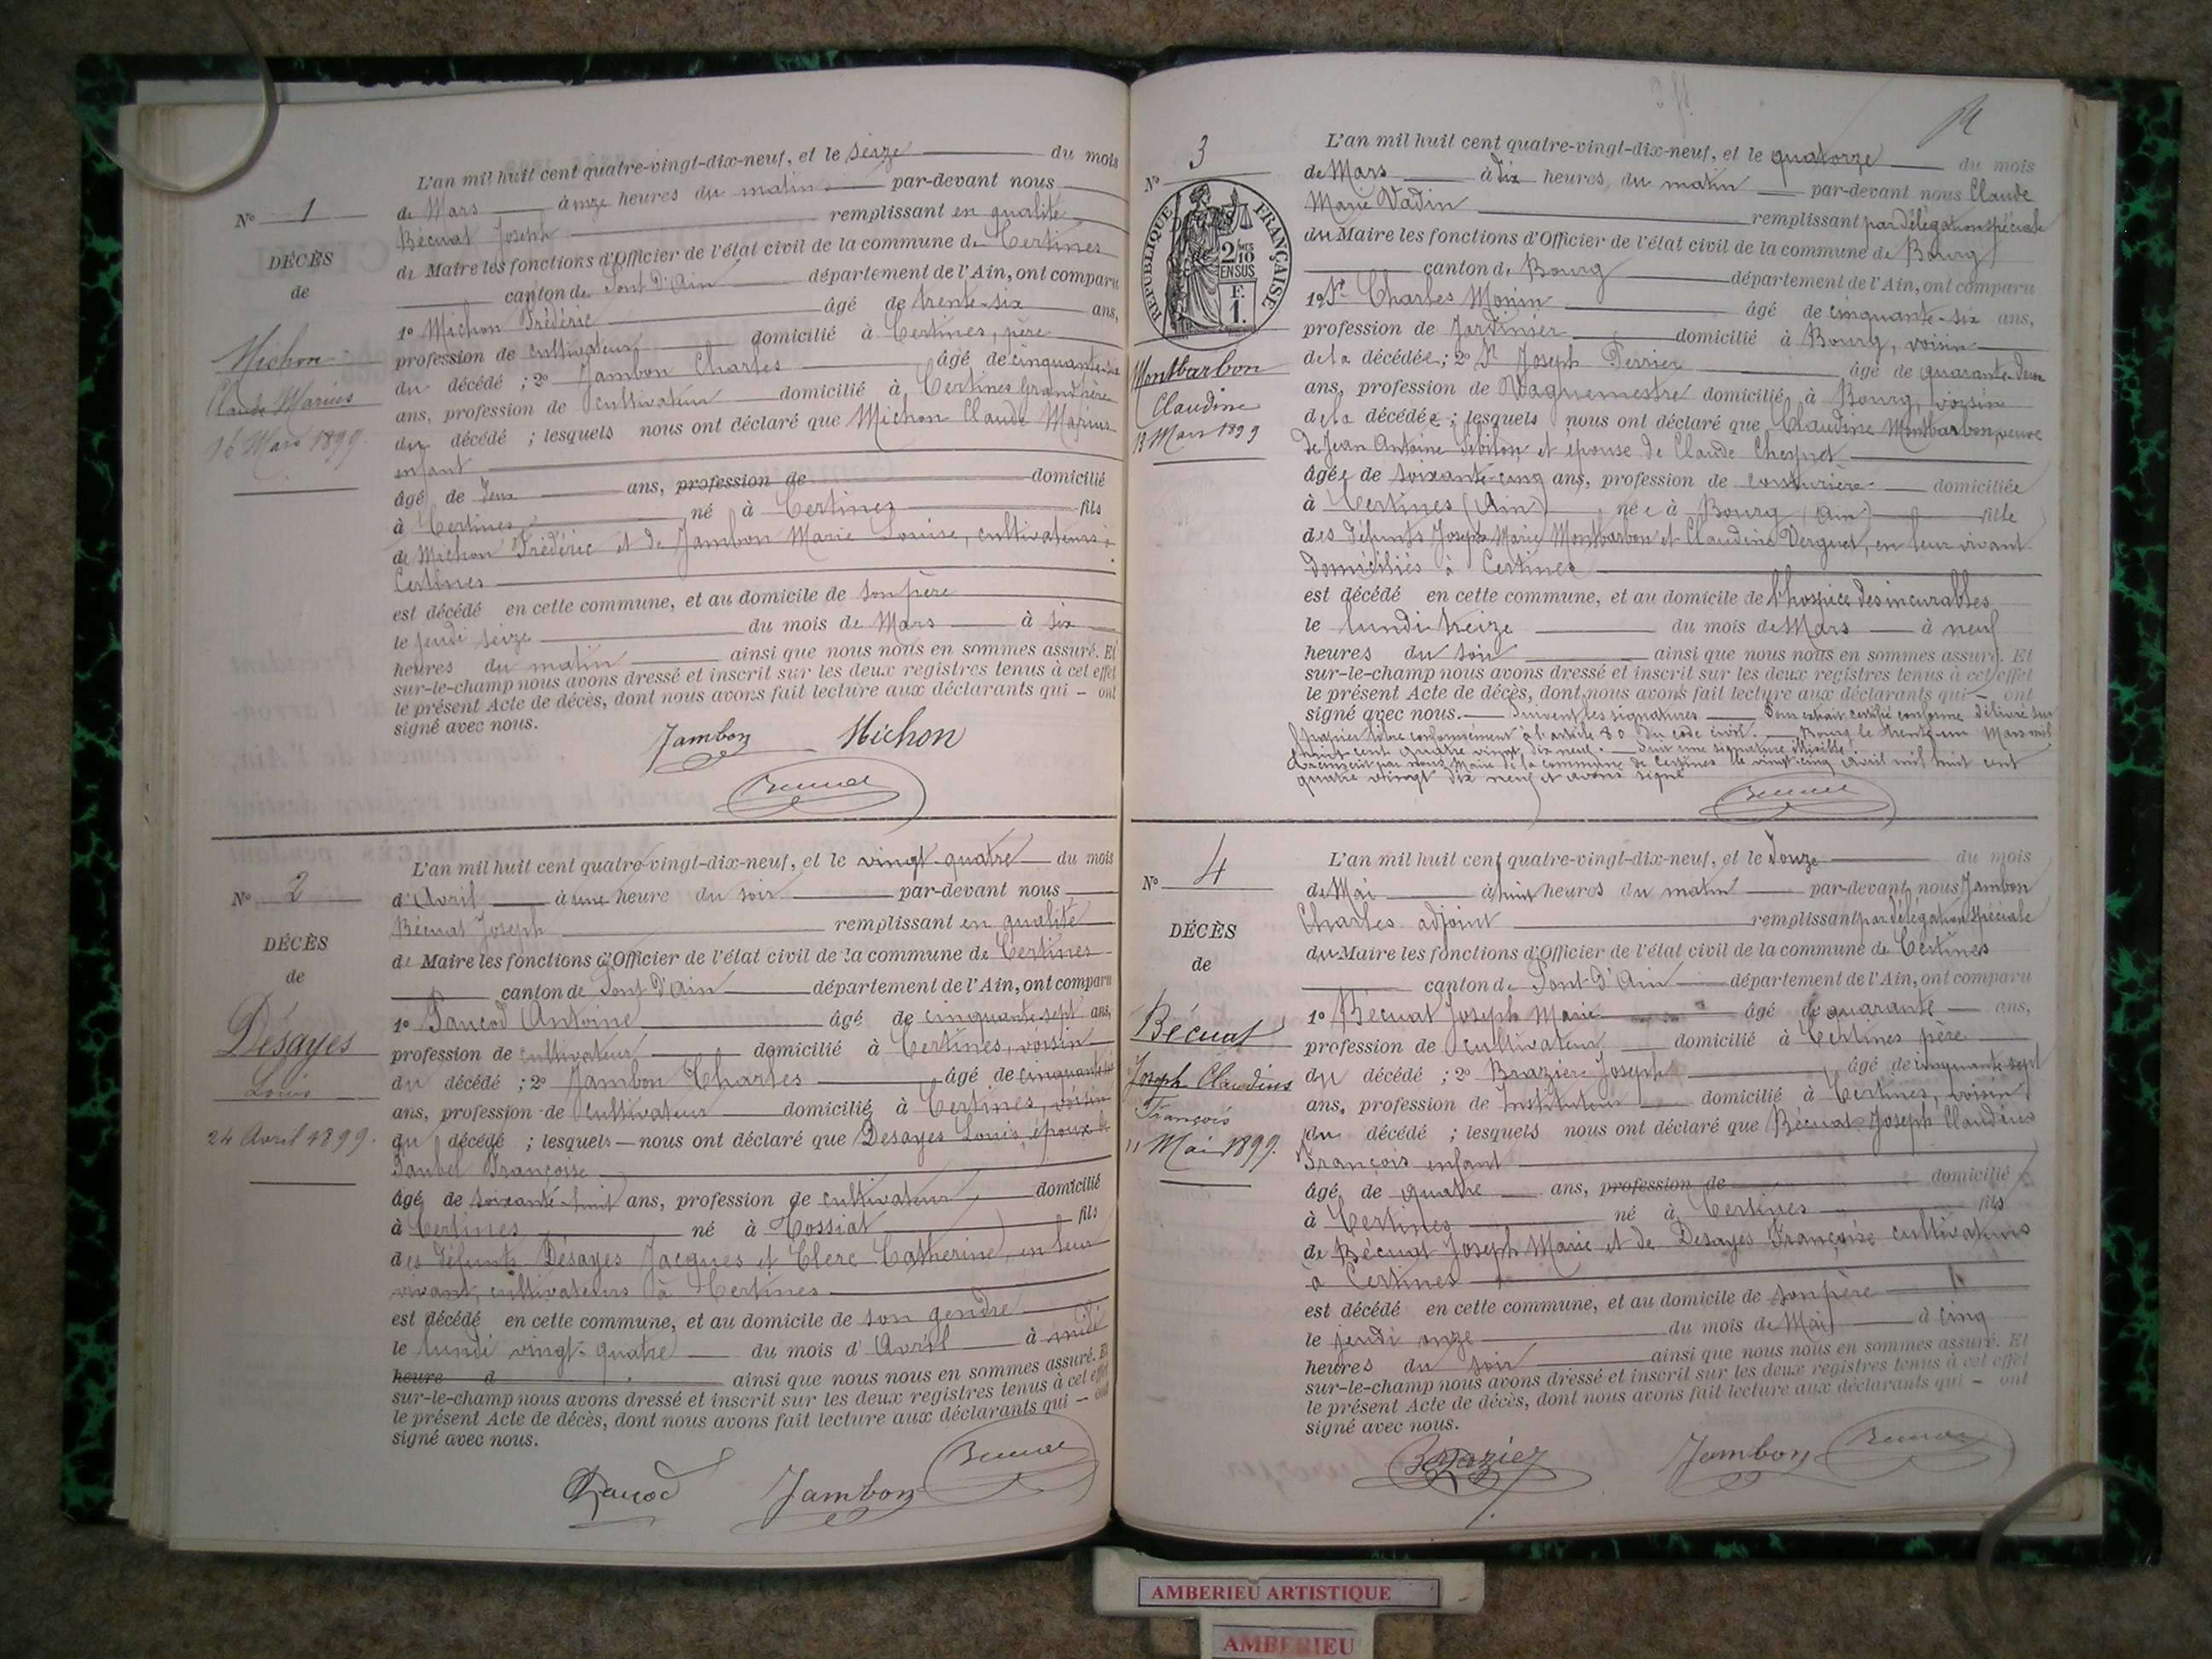 L'an mil huit cent quatre-vingt-dix-neuf, et le seize du mois
de Mars à onze heures du matin par-devant nous
Bécuat Joseph remplissant en qualité
de Maire les fonctions d'Officier de l'état civil de la commune de Certines
canton de Pont d'Ain département de l'Ain, ont comparu
1° Michon Frédéric âgé de trente-six ans,
profession de cultivateur domicilié à Certines, père
du décédé ; 2° Jambon Charles âgé de cinquante-six
ans, profession de cultivateur domicilié à Certines Grand père
du décédé ; lesquels nous ont déclaré que Michon Claude Marius
enfant
âgé de deux ans, profession de domicilié
à Certines né à Certines fils
de Michon Frédéric et de Jambon Marie Louise, cultivateurs à
Certines
est décédé en cette commune, et au domicile de son père
le jeudi seize du mois de Mars à six
heures du matin ainsi que nous nous en sommes assuré. Et
sur-le-champ nous avons dressé et inscrit sur les deux registres tenus à cet effet
le présent Acte de décès, dont nous avons fait lecture aux déclarants qui – ont
signé avec nous.
Jambon Michon
Bécuat
N° 1
DÉCÈS
de
Michon
Claude Marius
16 Mars 1899.
L'an mil huit cent quatre-vingt-dix-neuf, et le vingt-quatre du mois
d'Avril à une heure du soir par-devant nous
Bécuat Joseph remplissant en qualité
de Maire les fonctions d'Officier de l'état civil de la commune de Certines
canton de Pont d'Ain département de l'Ain, ont comparu
1° Pancod Antoine âgé de cinquante sept ans,
profession de cultivateur domicilié à Certines, voisin
du décédé ; 2° Jambon Charles âgé de cinquante six
ans, profession de cultivateur domicilié à Certines, voisin
du décédé ; lesquels — nous ont déclaré que Desayes Louis, époux de
Françoise
âgé de soixante-huit ans, profession de cultivateur domicilié
à Certines né à Tossiat fils
des défunts Désayes Jacques et Clerc Catherine, en leur
vivant, cultivateurs à Certines
est décédé en cette commune, et au domicile de son gendre
le lundi vingt-quatre du mois d'Avril à midi
heure d ainsi que nous nous en sommes assuré. Et
sur-le-champ nous avons dressé et inscrit sur les deux registres tenus à cet effet
le présent Acte de décès, dont nous avons fait lecture aux déclarants qui – ont
signé avec nous.
Pancod Jambon Bécuat
N° 2
DÉCÈS
de
Désayes
Louis
24 Avril 1899.
L'an mil huit cent quatre-vingt-dix-neuf, et le quatorze du mois
de Mars à dix heures du matin par-devant nous Claude
Marie Vadin remplissant par délégation spéciale
du Maire les fonctions d'Officier de l'état civil de la commune de Bourg
canton de Bourg département de l'Ain, ont comparu
1° Sr Charles Monin âgé de cinquante-six ans,
profession de Jardinier domicilié à Bourg, voisin
de la décédée ; 2° Sr Joseph Perrier âgé de quarante-deux
ans, profession de Vaguemestre domicilié à Bourg, voisin
de la décédée ; lesquels nous ont déclaré que Claudine Montbarbon, veuve
de Jean Antoine Sibilon et épouse de Claude Cheynet
âgée de soixante-cinq ans, profession de couturière domiciliée
à Certines (Ain) née à Bourg (Ain) fille
des défunts Joseph Marie Montbarbon et Claudine Verguet, en leur vivant
domiciliés à Certines
est décédé en cette commune, et au domicile de l'hospice des incurables
le lundi treize du mois de Mars à neuf
heures du soir ainsi que nous nous en sommes assuré. Et
sur-le-champ nous avons dressé et inscrit sur les deux registres tenus à cet effet
le présent Acte de décès, dont nous avons fait lecture aux déclarants qui – ont
signé avec nous. — Suivent les signatures — Pour extrait certifié conforme délivré sur
papier libre conformément à l'article 80 du code civil. — Bourg le trente-un Mars mil
huit cent quatre vingt dix neuf. — Suit une signature illisible.
Transcrit par nous Maire de la commune de Certines le vingt-cinq avril mil huit cent
quatre vingt dix neuf et avons signé
Bécuat
N° 3
RÉPUBLIQUE FRANÇAISE
2/10 EN SUS
F. 1.
Montbarbon
Claudine
13 Mars 1899
L'an mil huit cent quatre-vingt-dix-neuf, et le douze du mois
de Mai à huit heures du matin par-devant nous Jambon
Charles adjoint remplissant par délégation spéciale
du Maire les fonctions d'Officier de l'état civil de la commune de Certines
canton de Pont-d'Ain département de l'Ain, ont comparu
1° Bécuat Joseph Marie âgé de quarante ans,
profession de cultivateur domicilié à Certines père
du décédé ; 2° Brazier Joseph âgé de cinquante-sept
ans, profession de Instituteur domicilié à Certines, voisin
du décédé ; lesquels nous ont déclaré que Bécuat Joseph Claudius
François enfant
âgé de quatre ans, profession de domicilié
à Certines né à Certines fils
de Bécuat Joseph Marie et de Desayes Françoise cultivateurs
à Certines
est décédé en cette commune, et au domicile de son père
le jeudi onze du mois de Mai à cinq
heures du soir ainsi que nous nous en sommes assuré. Et
sur-le-champ nous avons dressé et inscrit sur les deux registres tenus à cet effet
le présent Acte de décès, dont nous avons fait lecture aux déclarants qui – ont
signé avec nous.
Brazier Jambon Bécuat
N° 4
DÉCÈS
de
Bécuat
Joseph Claudius
François
11 Mai 1899.
AMBERIEU ARTISTIQUE
AMBERIEU